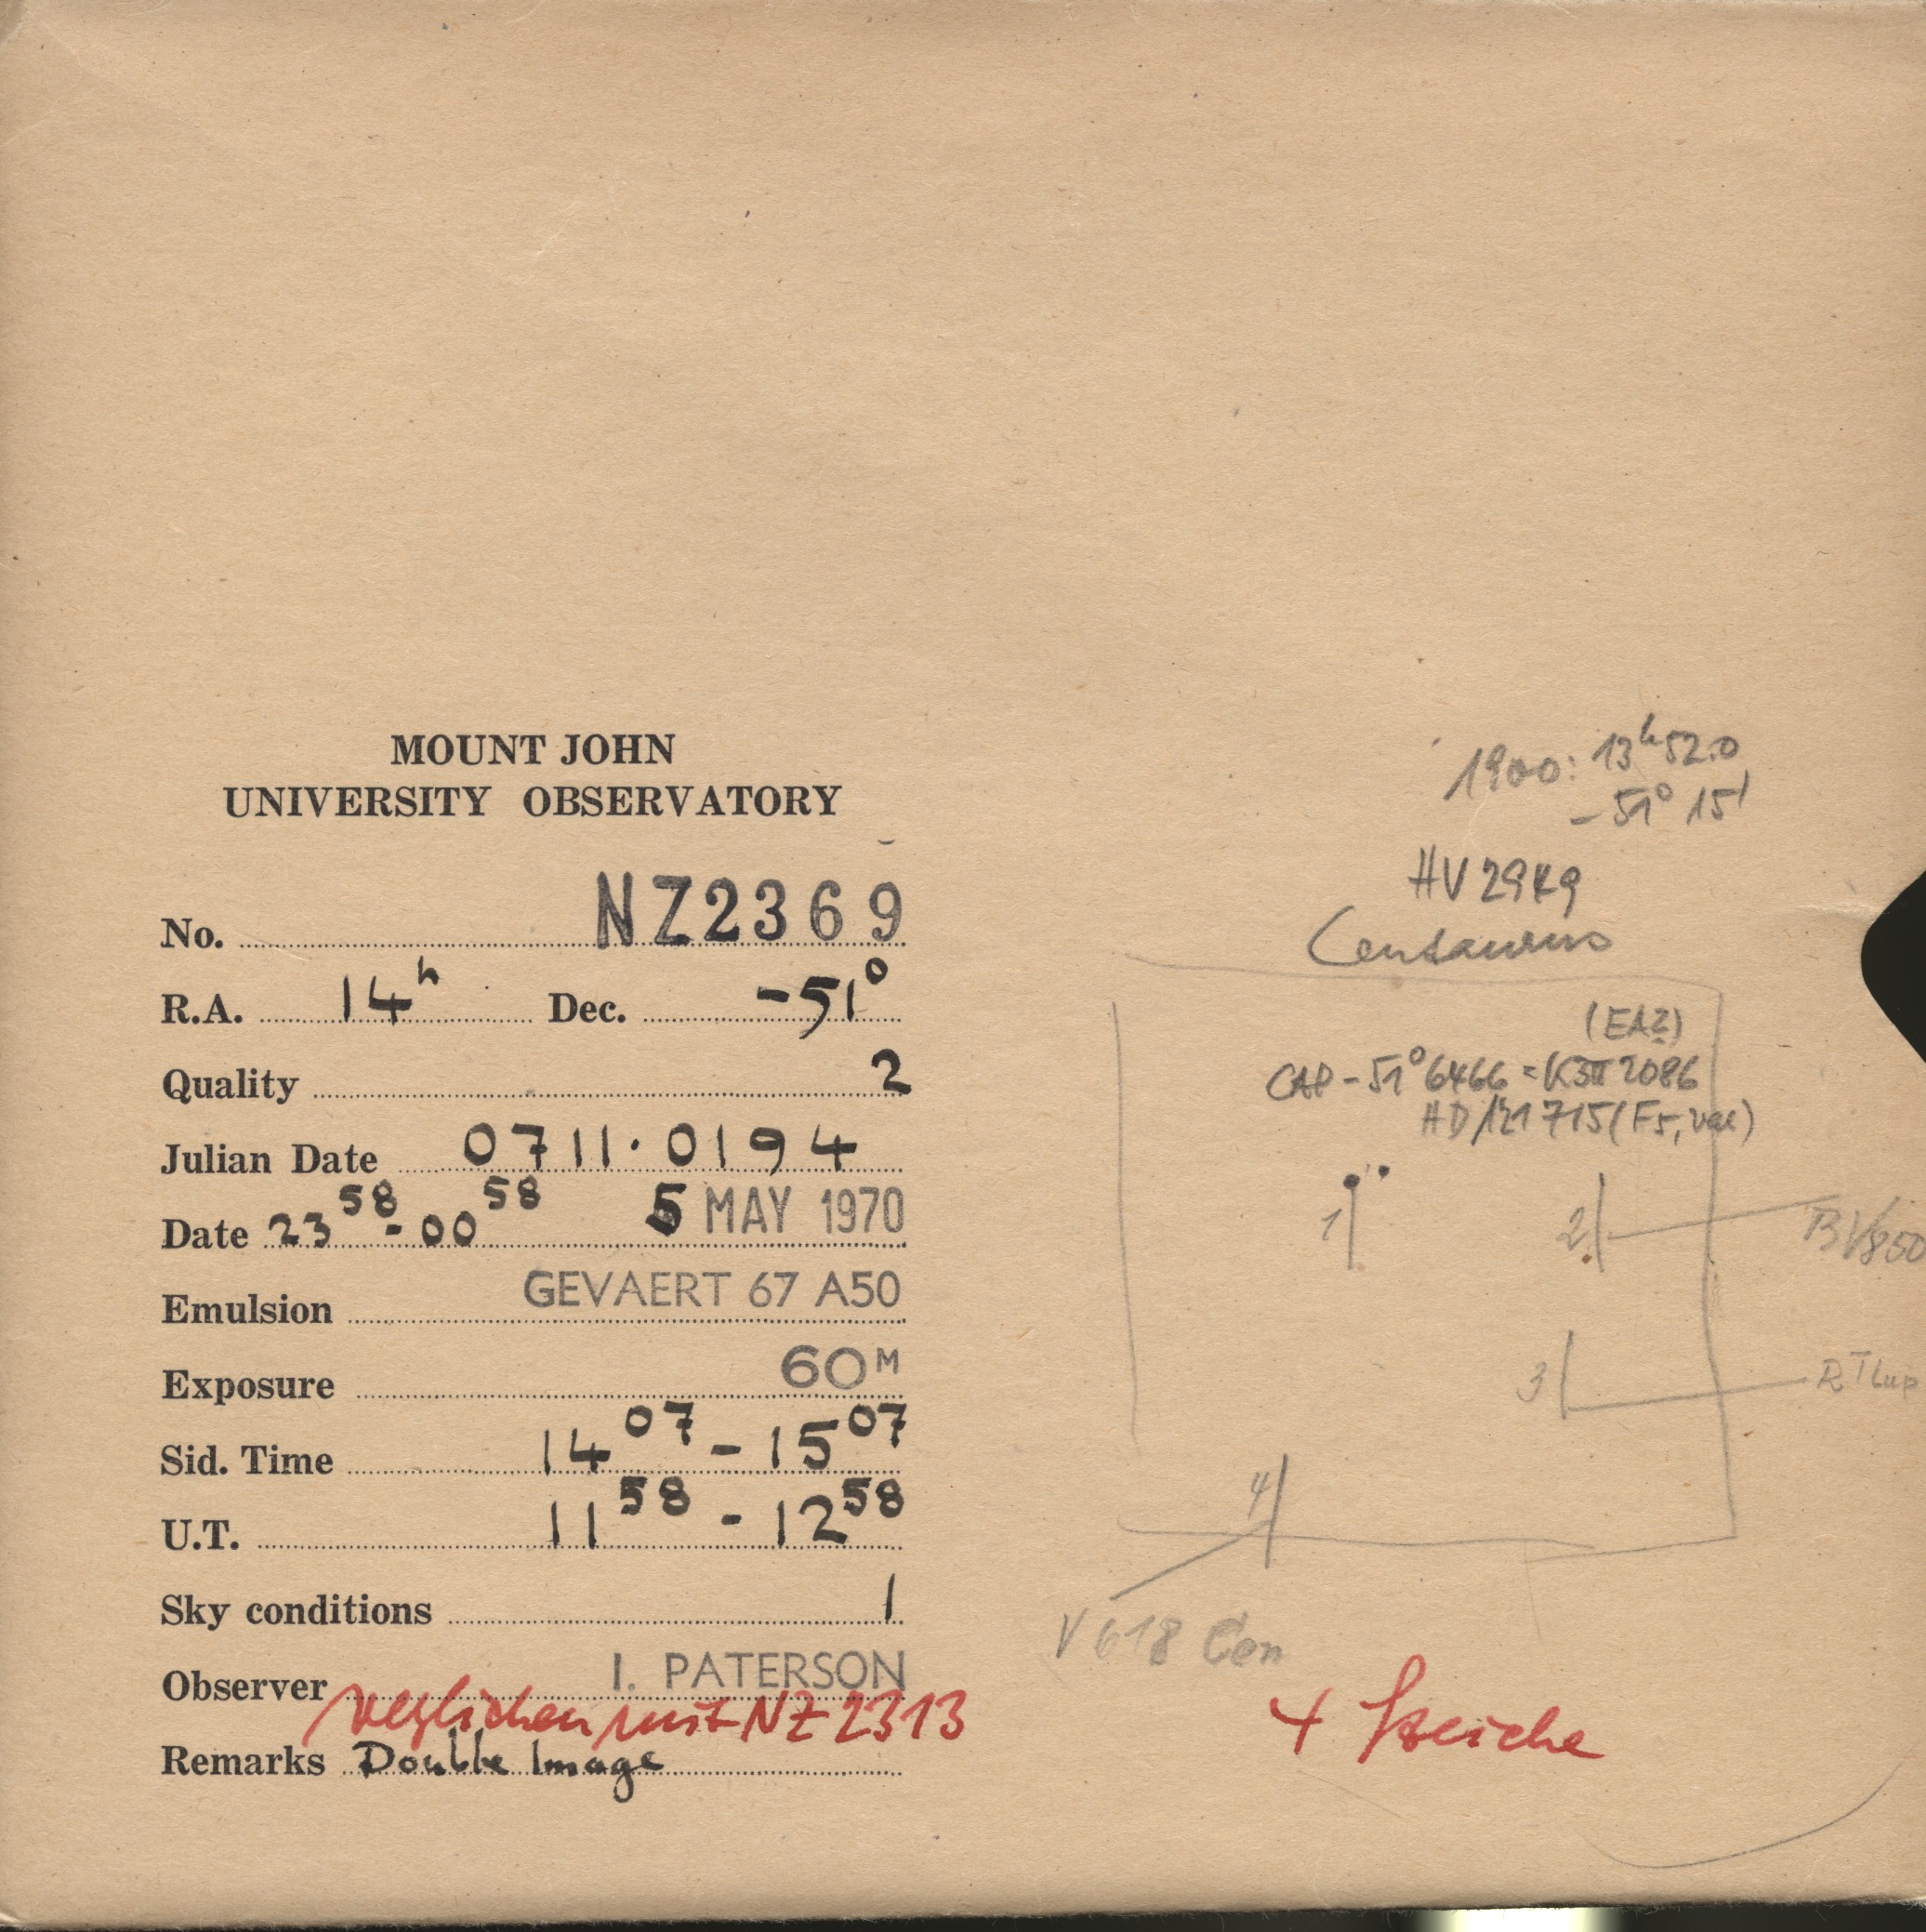 MOUNT JOHN
UNIVERSITY OBSERVATORY
No. NZ2369
R.A. 14h Dec. -51°
Quality 2
Julian Date 0711.0194
Date 23 58 - 00 58 5 MAY 1970
Emulsion GEVAERT 67 A50
Exposure 60M
Sid. Time 14 07 - 15 07
U.T. 11 58 - 12 58
Sky conditions 1
Observer I. PATERSON
verglichen mit NZ 2313
Remarks Double Image
1900: 13h 52.0
-51° 15'
HV
Centaurus
(EA?)
CAP -51° 6466 = K3Π 2086
HD 121715 (F5, var)
1
2
BV 850
3
RT Lup
4
V 618 Cen
4 Striche